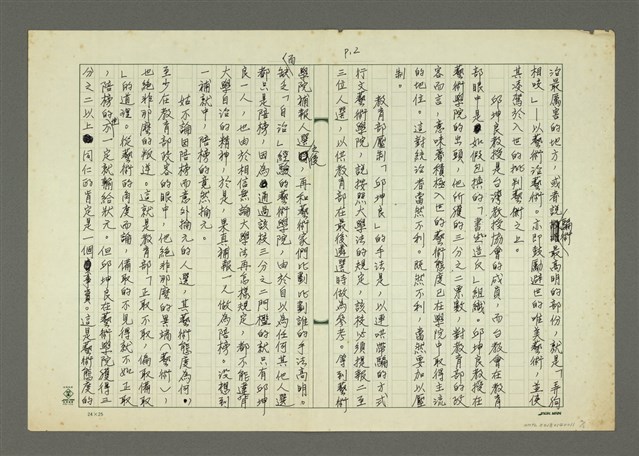 P.2
治最厲害的地方,或者說騙術最高明的部份,就是「弄狗
相咬」——以藝術治藝術。亦即鼓勵避世的唯美藝術,並使
其凌駕於入世的批判藝術之上。
邱坤良教授是台灣教授協會的成員,而台教會在教育
部眼中是如假包換的「書寇造反」組織。邱坤良教授在
藝術學院的出頭,他所獲的三分之二票數,對教育部的政
客而言,意味著積極入世的藝術態度已在學院中取得主流
的地位。這對統治者當然不利。既然不利,當然要加以壓
制。
教育部壓制「邱坤良」的手法是,以連哄帶騙的方式
行文藝術學院,說按照大學法的規定,該校必須提報二至
三位人選,以供教育部在最後遴選時做為參考。等到藝術
學院補報人選之後,再和藝術家們比劃比劃誰的手法高明。
而缺乏「自治」經驗的藝術學院,由於自以為任何其他人選
都只是陪榜,因為通過該校三分之二門檻的就只有邱坤
良一人,也由於相信無論大學法再怎樣規定,都不能違背
大學自治的精神,於是,果真補報一人做為陪榜。沒想到
一補就中,陪榜的竟然掄元。
姑不論因陪榜而意外掄元的人選,其藝術態度為何,
至少在教育部政客的眼中,他絕非那麼的異端藝術,
也絕非那麼的叛逆。這就是教育部「正取不取,備取備取
」的道理。從藝術的角度而論,備取的不見得就不如正取
,陪榜的也不一定就輸給狀元。但邱坤良在藝術學院獲得三
分之二以上同仁的肯定是一個事實。這是藝術態度的
24×25